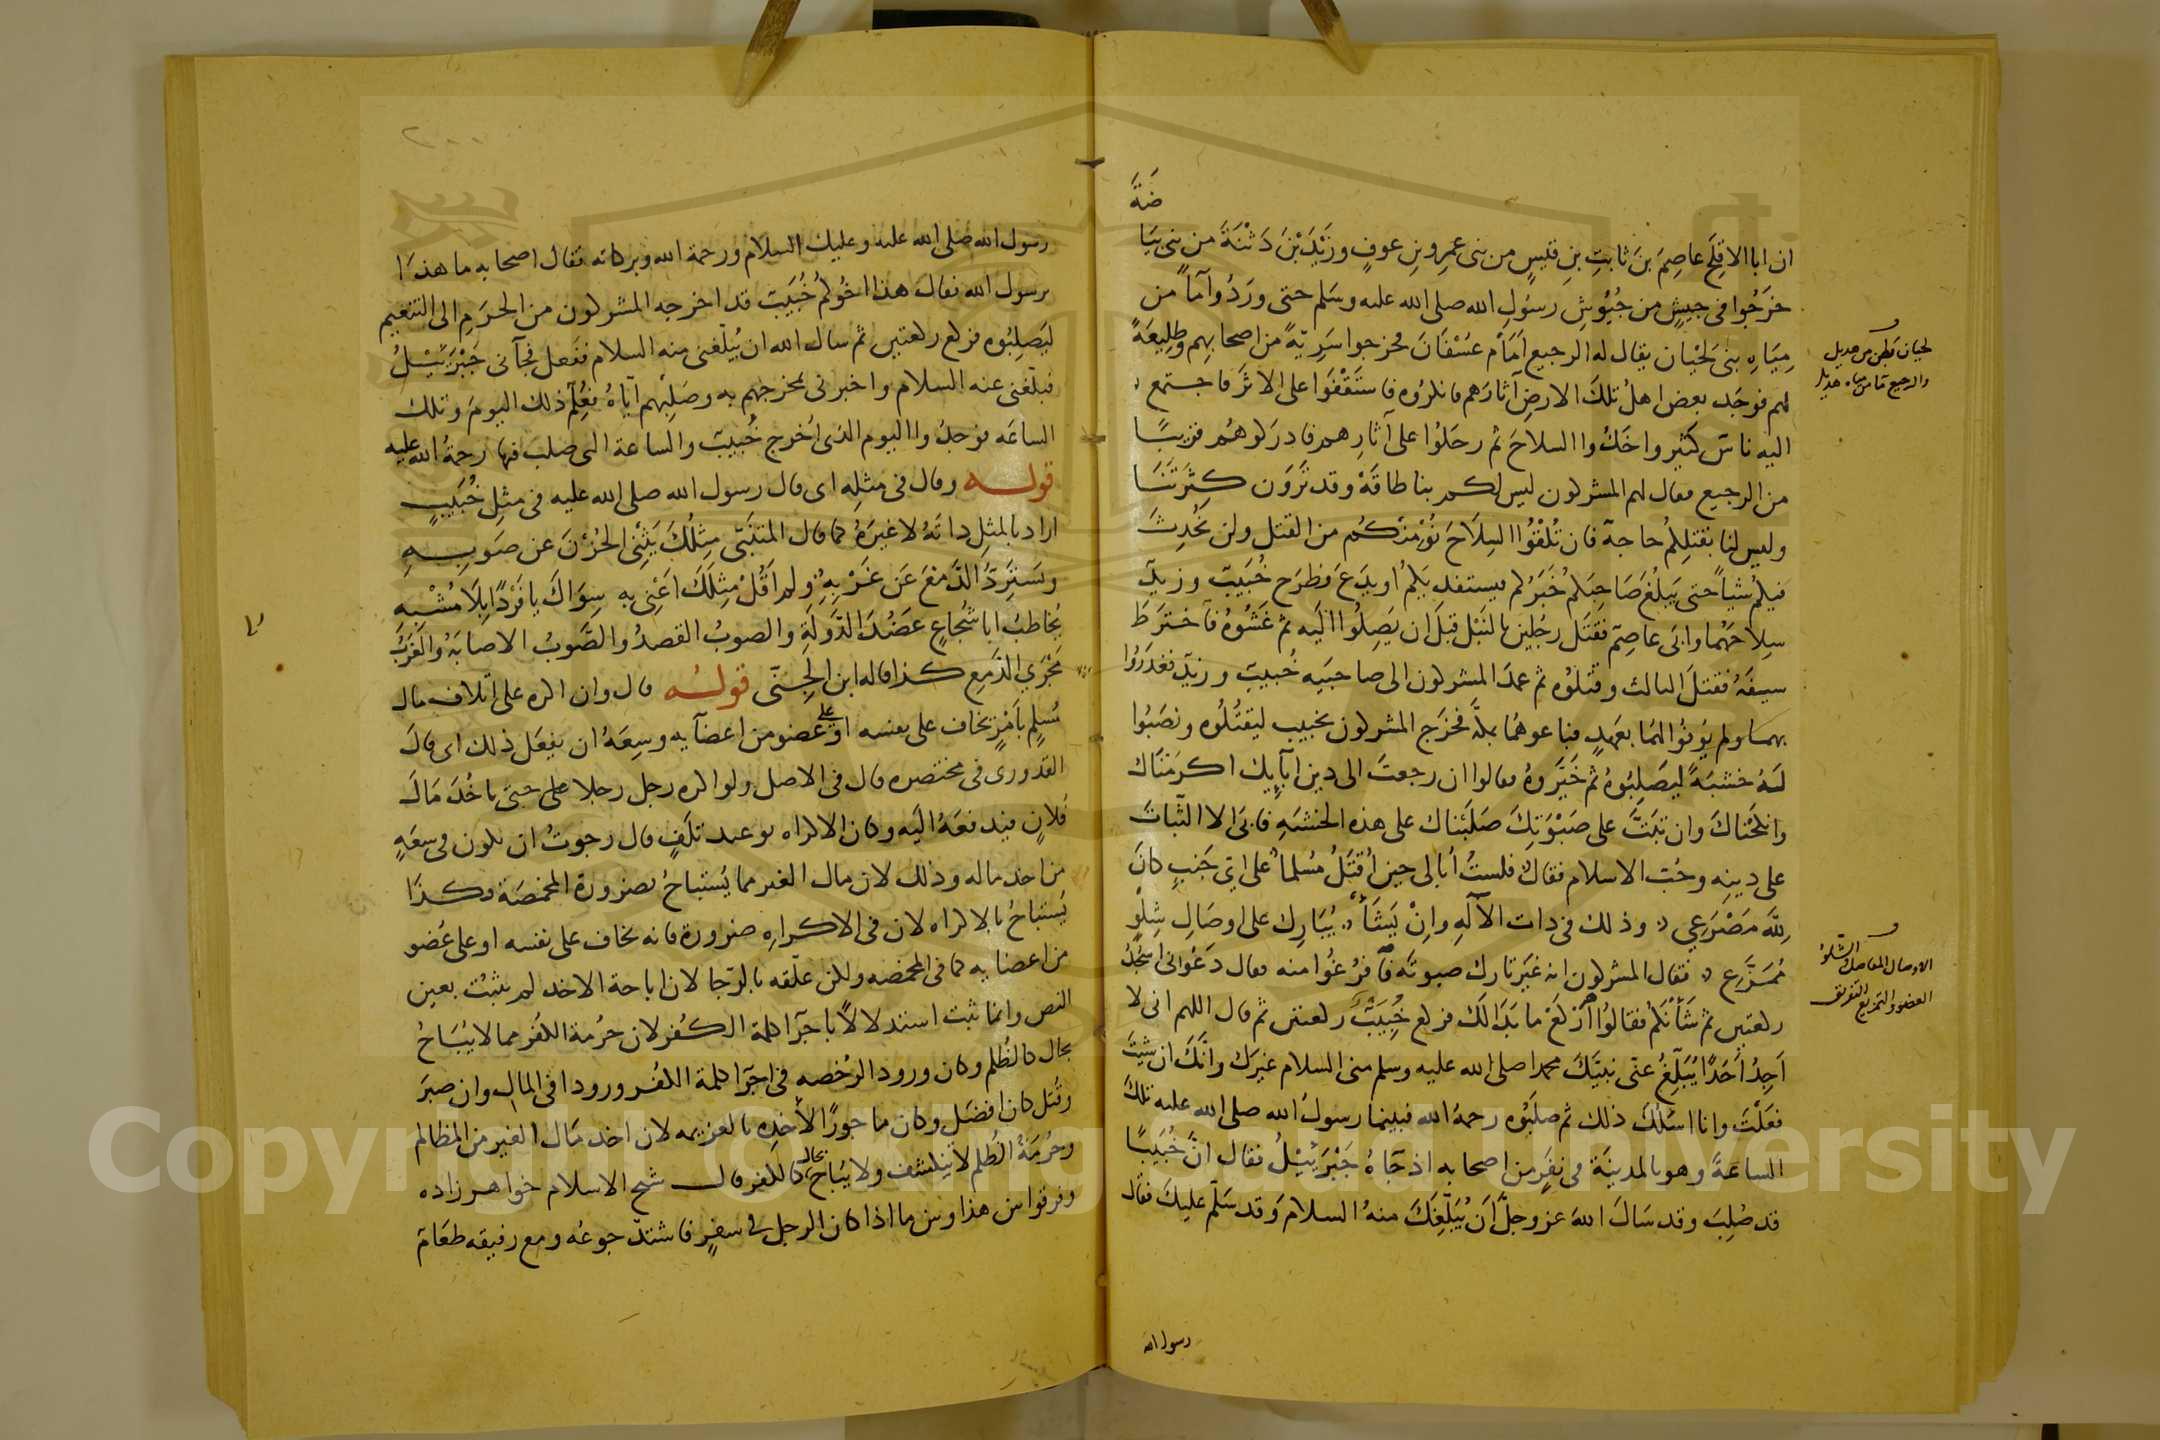 ضة
ان ابا الاقلح عاصم بن ثابت بن قيس من بنى عمرو بن عوف وزيد بن دثنة من بنى بيا
خرجوا فى جيش من جيوش رسول الله صلى الله عليه وسلم حتى وردوا ماء من
مياه بنى لحيان يقال له الرجيع امام عسفان فخرجوا سرية من اصحابهم وطليعة
لهم فوجد بعض اهل تلك الارض آثارهم فانكروه فاستقفوا على الاثر فاجتمع
اليه ناس كثير واخذوا السلاح ثم رحلوا على آثارهم فادركوهم قريبا
من الرجيع فقال لهم المشركون ليس لكم بنا طاقة وقد ترون كثرتنا
وليس لنا بقتلكم حاجة فان تلقوا السلاح نؤمنكم من القتل ولن نحدث
فيكم شيأ حتى يبلغ صاحبكم خبركم فيستفد بكم او يدع فطرح خبيب وزيد
سلاحهما وابى عاصم فقتل رجلين بالنبل قبل ان يصلوا اليه ثم غشوه فاخترط
سيفه فقتل الثالث وقتلوه ثم عمد المشركون الى صاحبيه خبيب وزيد فغدروا
بهما ولم يوفوا لهما بعهد فباعوهما بمكة فخرج المشركون بخبيب ليقتلوه ونصبوا
له خشبة ليصلبوه ثم خيروه فقالوا ان رجعت الى دين ابايك اكرمناك
وانكحناك وان تثبت على صبوتك صلبناك على هذه الخشبه فابى الا الثبات
على دينه وحب الاسلام فقال فلست ابالى حين اقتل مسلما على اى جنب كان
لله مصرعي وذلك فى ذات الآله وان يشأ يبارك على اوصال شلو
ممزع فقال المشركون انه غير تارك صبوته فافرغوا منه فقال دعوانى اسجد
ركعتين ثم شأنكم فقالوا اركع ما بدا لك فركع خبيب ركعتين ثم قال اللهم انى لا
اجد احدا يبلغ عنى نبيك محمدا صلى الله عليه وسلم منى السلام غيرك وانك ان شيت
فعلت وانا اسئلك ذلك ثم صلبوه رحمه الله فبينما رسول الله صلى الله عليه تلك
الساعة وهو بالمدينة فى نفر من اصحابه اذ جاه جبرئيل فقال ان خبيبا
قد صلب وقد سال الله عز وجل ان يبلغك منه السلام وقد سلم عليك فقال
رسول الله
لحيان بطن من هذيل
والرجيع ماء من مياه هذيل
الاوصال المفاصل والشلو
العضو والتمزيع التفريق
رسول الله صلى الله عليه وعليك السلام ورحمة الله وبركاته فقال اصحابه ما هذا
يرسول الله فقال هذا اخوكم خبيب قد اخرجه المشركون من الحرم الى التنعيم
ليصلبوه فركع ركعتين ثم سال الله ان يبلغنى منه السلام ففعل فجآنى جبرئيل
فبلغنى عنه السلام واخبرنى بمخرجهم به وصلبهم اياه فعلم ذلك اليوم وتلك
الساعه فوجدوا اليوم الذى اخرج خبيب والساعة التى صلب فيها رحمة الله عليه
قوله وقال فى مثله اى قال رسول الله صلى الله عليه فى مثل خبيب
اراد بالمثل ذاته لا غيره كما قال المتنبى مثلك يثنى الحزن عن صوبه
وسترد الدمع عن غربه ولم اقل مثلك اعنى به سواك يا فردا بلا مشبه
يخاطب ابا شجاع عضد الدولة والصوب القصد والصوب الاصابة والغرب
مجرى الدمع كذا قاله ابن الجنى قوله قال وان اكره على اتلاف مال
مسلم بامر يخاف على نفسه او على عضو من اعضآيه وسعه ان يفعل ذلك اى قال
القدورى فى مختصره قال فى الاصل ولو اكره رجل رجلا على حتى ياخذ مال
فلان فيدفعه اليه وكان الاكراه بوعيد تلف قال رجوت ان يكون فى سعة
من اخذ ماله وذلك لان مال الغير مما يستباح بضرورة المخمصة فكذا
يستباح بالاكراه لان فى الاكراه ضرورة فانه يخاف على نفسه او على عضو
من اعضايه كما فى المخمصه ولكن علقه بالرجا لان اباحة الاخذ لم يثبت بعين
النص وانما ثبت استدلالا باجرآ كلمة الكفر لان حرمة الكفر مما لا يباح
بحال كالظلم وكان ورود الرخصه فى اجرآ كلمة الكفر ورودا فى المال وان صبر
وقتل كان افضل وكان ماجورا لاخذه بالعزيمه لان اخذ مال الغير من المظالم
وحرمة الظلم لا تنكشف ولا يباح بحال كالكفر قال شيخ الاسلام خواهرزاده
وفرقوا بين هذا وبين ما اذا كان الرجل فى سفر فاشتد جوعه ومع رفيقه طعام
Copyright © King Saud University